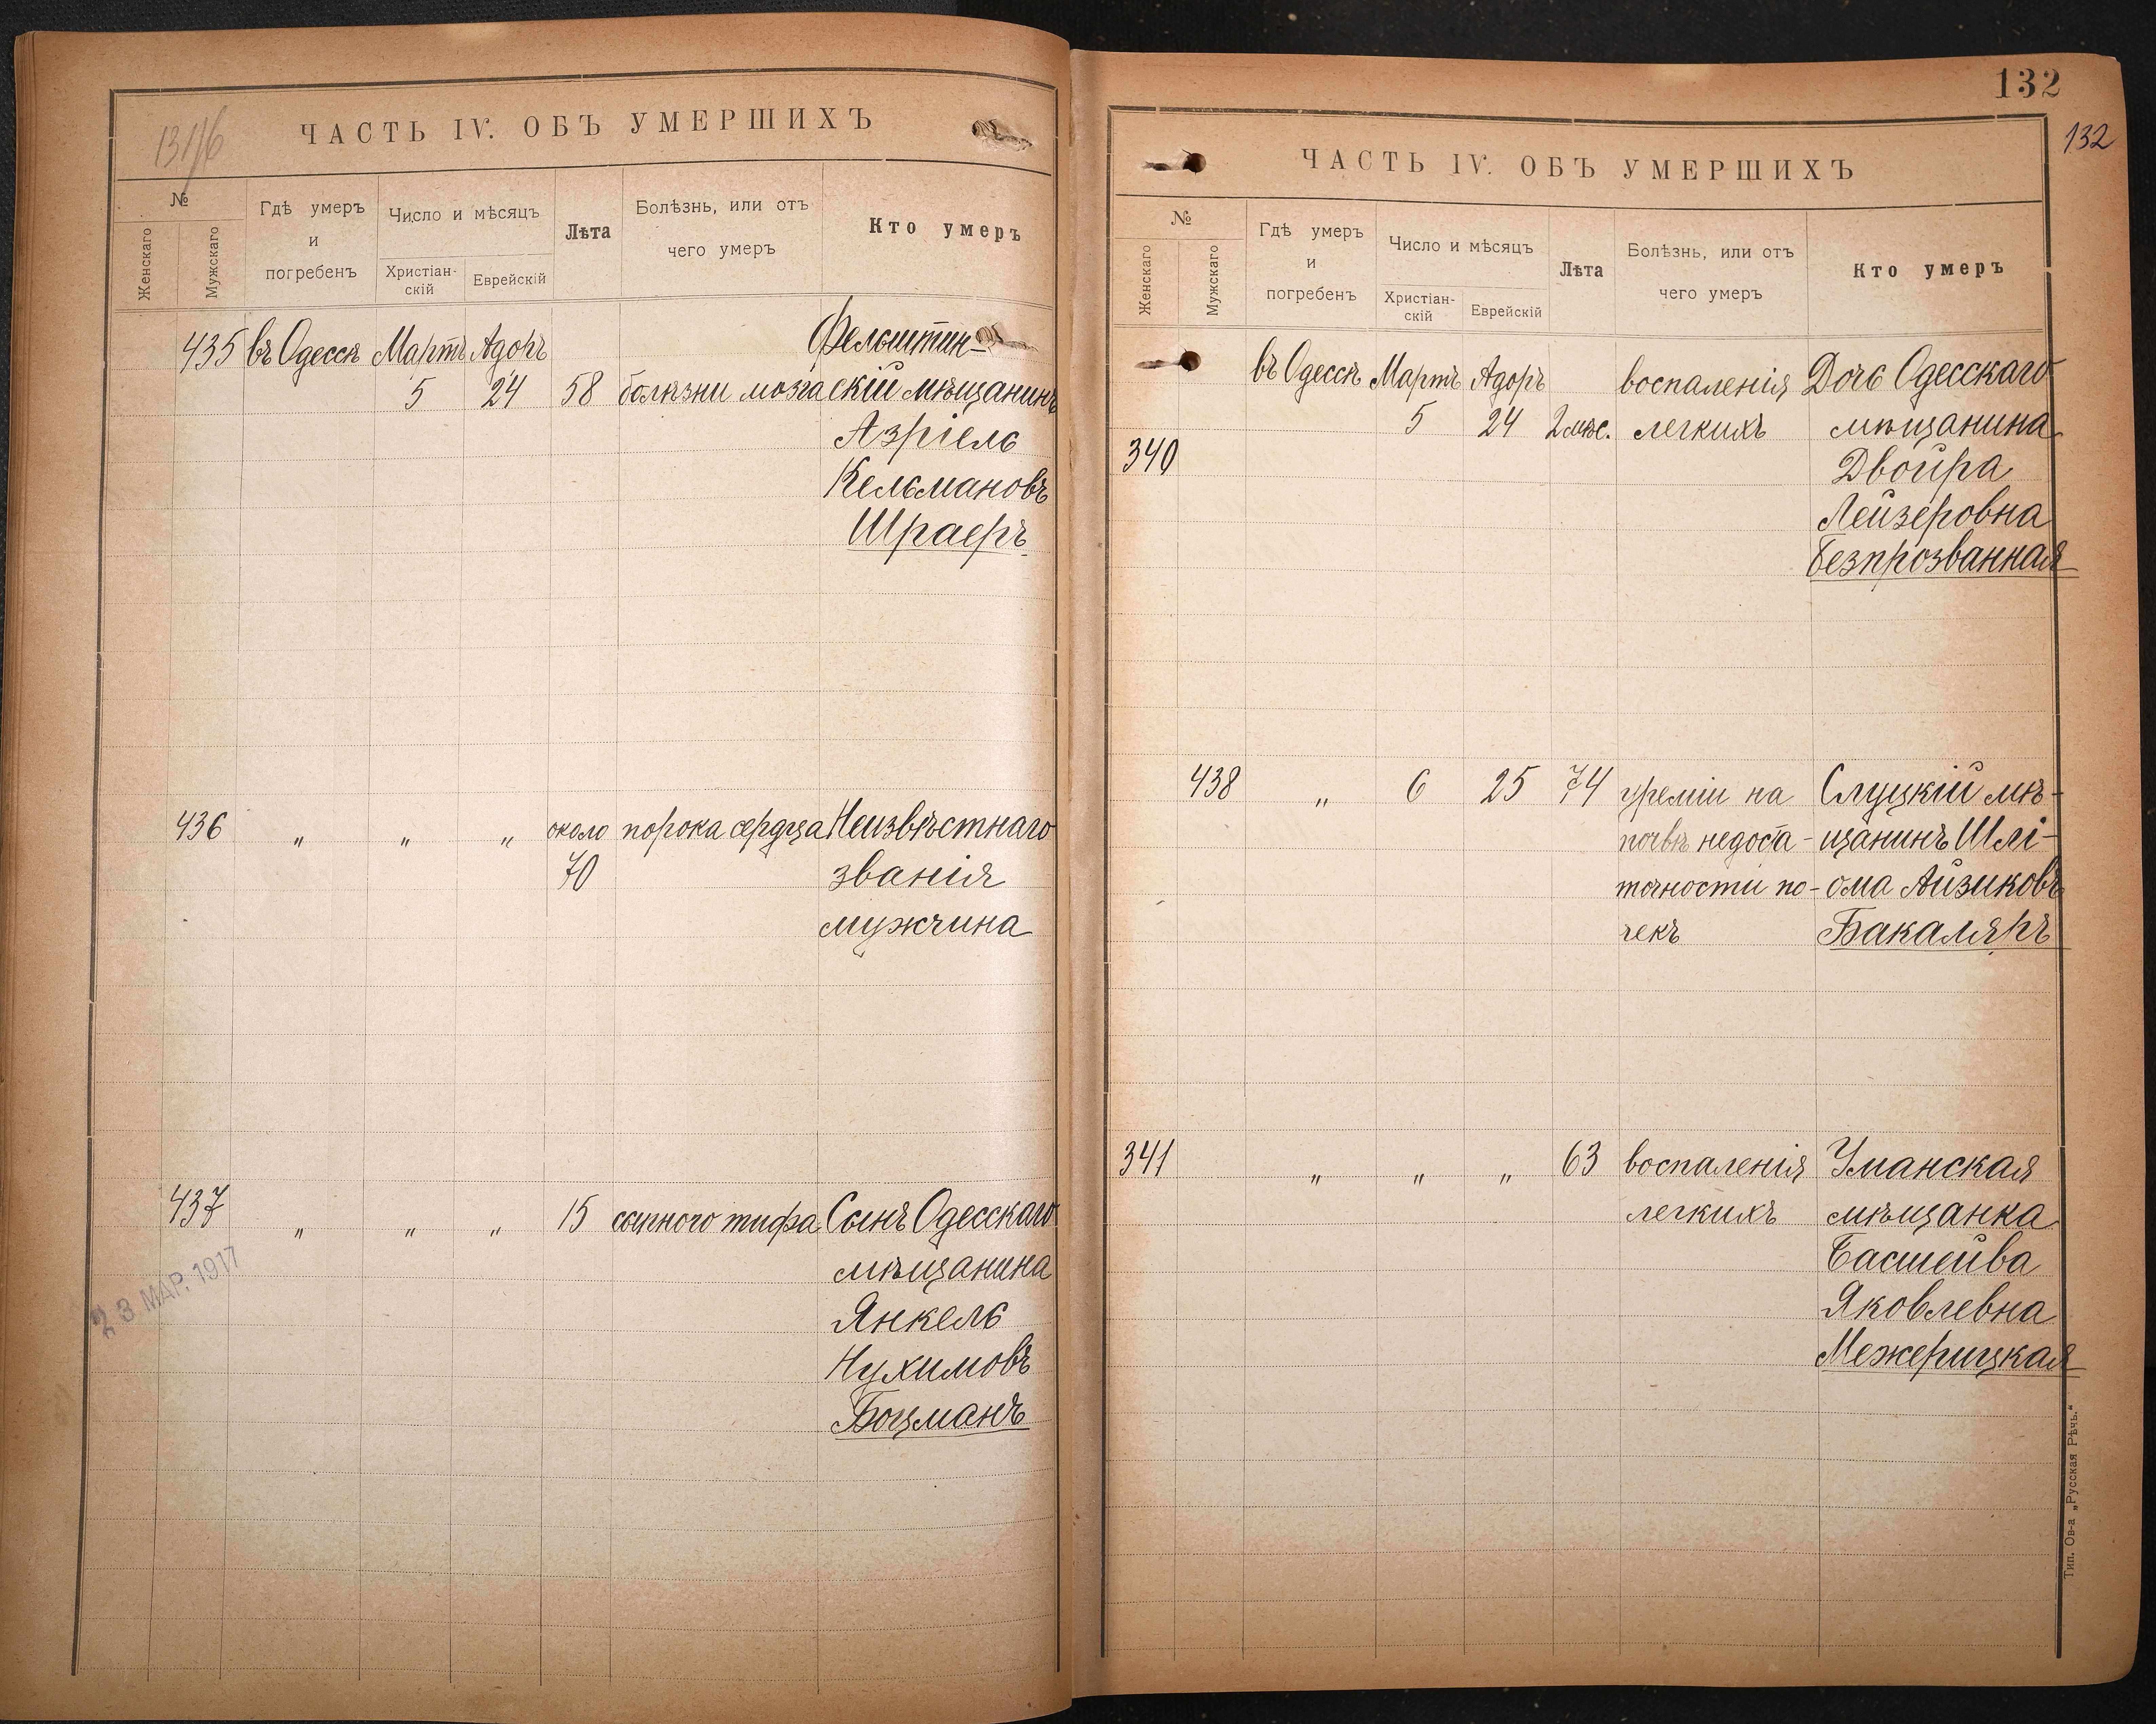 131/б
ЧАСТЬ IV. ОБЪ УМЕРШИХЪ
№
Женскаго
Мужскаго
Гдѣ умеръ
и
погребенъ
Число и мѣсяцъ
Христіан-
скій
Еврейскій
Лѣта
Болѣзнь, или отъ
чего умеръ
Кто умеръ
435 въ Одессѣ Мартъ Адоръ Фельштин-
5 24 58 болѣзни мозга скій мѣщанинъ
Азріель
Кельмановъ
Шраеръ
436 " " " около порока сердца Неизвѣстнаго
70 званія
мужчина
437 " " " 15 сыпного тифа Сынъ Одесскаго
мѣщанина
Янкель
Нухимовъ
Боцманъ
23 МАР. 1917
132
132
ЧАСТЬ IV. ОБЪ УМЕРШИХЪ
№
Женскаго
Мужскаго
Гдѣ умеръ
и
погребенъ
Число и мѣсяцъ
Христіан-
скій
Еврейскій
Лѣта
Болѣзнь, или отъ
чего умеръ
Кто умеръ
въ Одессѣ Мартъ Адоръ воспаленія Дочь Одесскаго
5 24 2 мѣс. легкихъ мѣщанина
340 Двойра
Лейзеровна
Безпрозванная
438 " 6 25 74 уреміи на Слуцкій мѣ-
почвѣ недоста- щанинъ Шлі-
точности по- ома Айзиковъ
чекъ Бакаляръ
341 " " " 63 воспаленія Уманская
легкихъ мѣщанка
Басшейва
Яковлевна
Межерицкая
Тип. Ов-а „Русская Рѣчь."